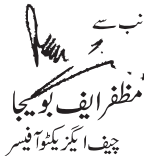 نب سے
مظفر ایف بوکیجا
چیف ایگزیکٹو آفیسر